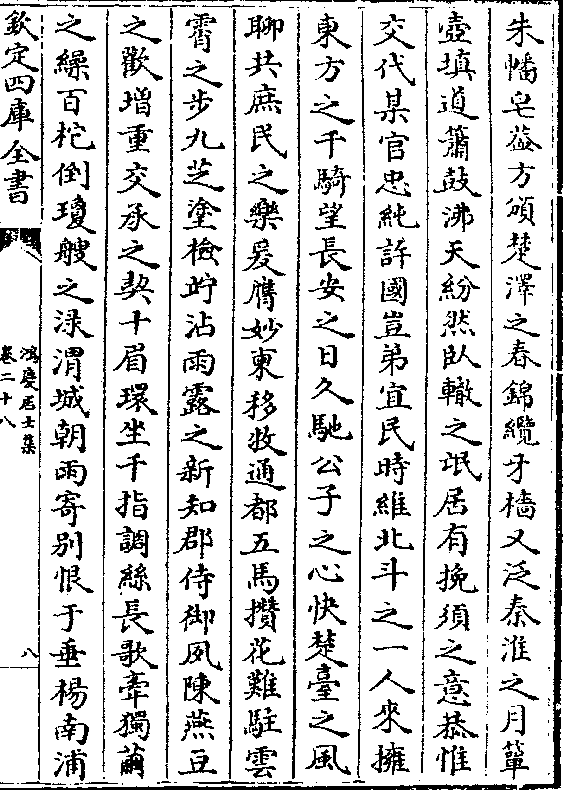 朱幡皂葢方頒楚澤之春錦纜牙檣又泛秦淮之月簞
壺填道簫鼓沸天紛然臥轍之氓居有挽須之意恭惟
交代某官忠純許國豈弟宜民時維北斗之一人來擁
東方之千騎望長安之日久馳公子之心快楚臺之風
聊共庶民之樂爰膺妙柬移牧通都五馬攢花難駐雲
霄之步九芝塗檢竚沾雨露之新知郡侍御夙陳燕豆
之歡增重交承之契十眉環坐千指調絲長歌牽獨繭
之繰百柁倒瓊艘之淥渭城朝雨寄别恨于垂楊南浦
欽定四庫全書
鴻慶居士集
卷二十八
八